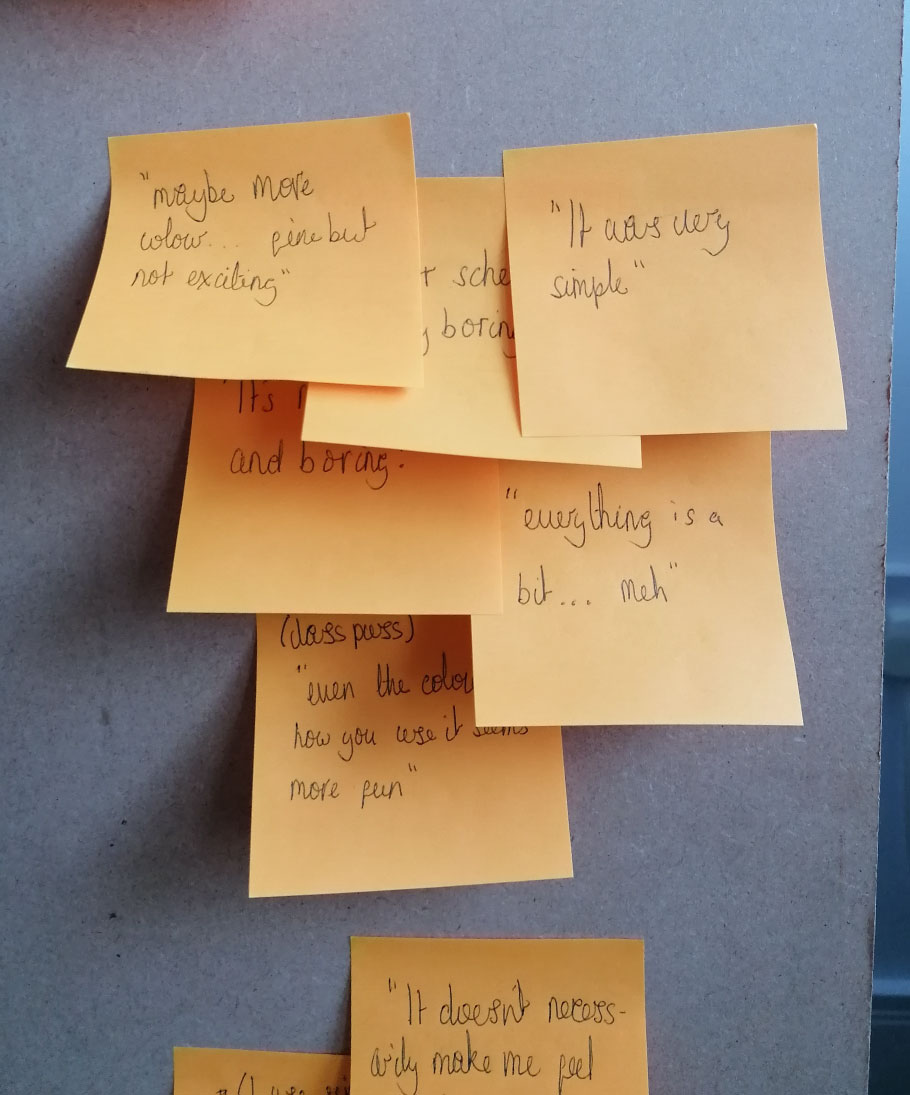 "maybe more
colour... fine but
not exciting"
boring
"It was very
simple"
"It's
and boring.
"everything is a
bit... meh"
(class pass)
"even the colour
how you use it seems
more fun"
"It doesn't necess-
arily make me feel